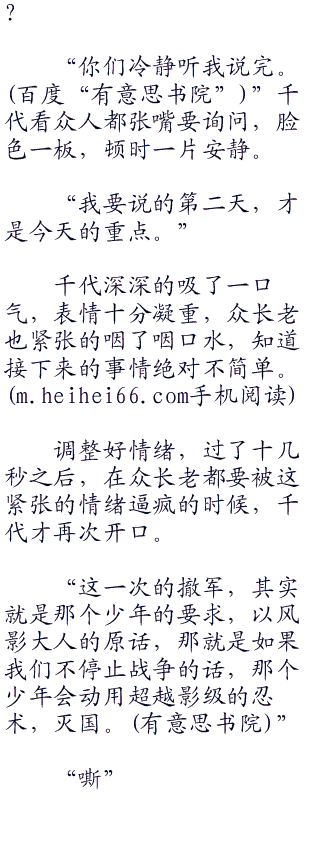 ?
“你们冷静听我说完。
(百度“有意思书院”)”千
代看众人都张嘴要询问，脸
色一板，顿时一片安静。
“我要说的第二天，才
是今天的重点。”
千代深深的吸了一口
气，表情十分凝重，众长老
也紧张的咽了咽口水，知道
接下来的事情绝对不简单。
(m.heihei66.com手机阅读)
调整好情绪，过了十几
秒之后，在众长老都要被这
紧张的情绪逼疯的时候，千
代才再次开口。
“这一次的撤军，其实
就是那个少年的要求，以风
影大人的原话，那就是如果
我们不停止战争的话，那个
少年会动用超越影级的忍
术，灭国。(有意思书院)”
“嘶”